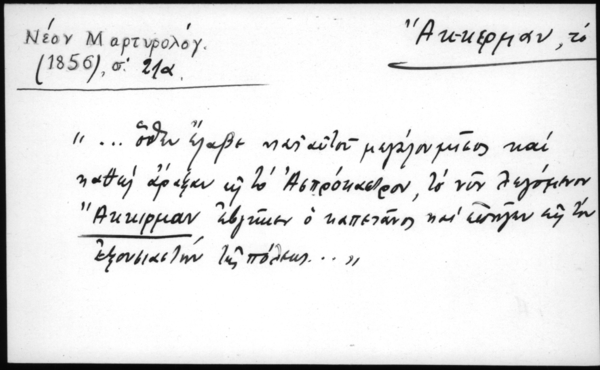 Νέον Μαρτυρολόγ.
(1856), σ. 21α.
Ἄκκερμαν, τὸ
"... ὅθεν ἔλαβε κατ' αὐτοῦ μεγάλον μῖσος καὶ
καθὼς ἄραξαν εἰς τὸ Ἀσπρόκαστρον, τὸ νῦν λεγόμενον
Ἄκκιρμαν εὐγῆκεν ὁ καπετάνος καὶ ἐπῆγεν εἰς τὸν
ἐξουσιαστὴν τῆς πόλεως..."